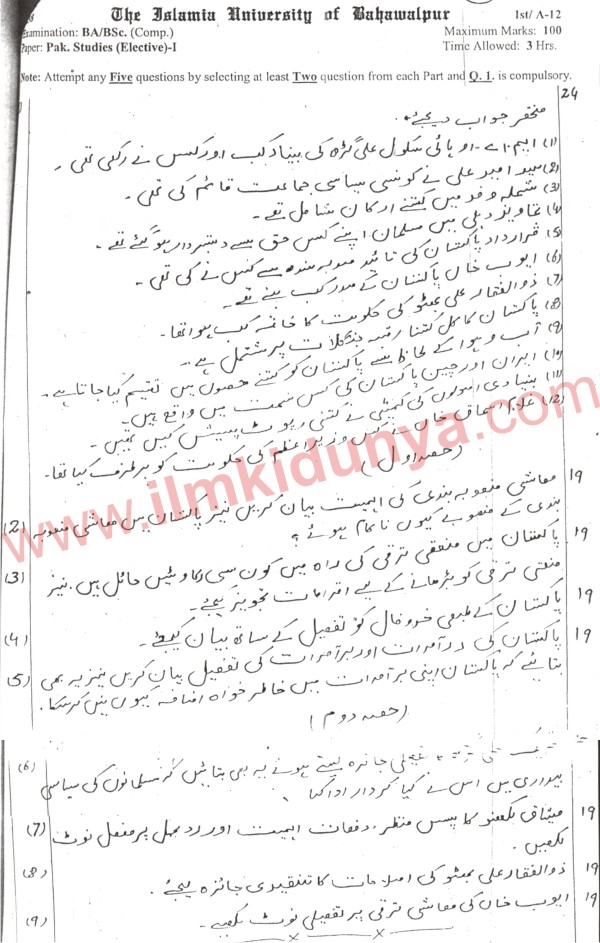 The Islamia University of Bahawalpur
1st/ A-12
Examination: BA/BSc. (Comp.)
Maximum Marks: 100
Paper: Pak. Studies (Elective)-I
Time Allowed: 3 Hrs.
Note: Attempt any Five questions by selecting at least Two question from each Part and Q. 1. is compulsory.
24
مختصر جواب دیجئے۔
(1) ایم۔اے۔او ہائی سکول علی گڑھ کی بنیاد کب اور کس نے رکھی تھی۔
(2) سید امیر علی نے کونسی سیاسی جماعت قائم کی تھی۔
(3) شملہ وفد میں کتنے ارکان شامل تھے۔
(4) تجاویز دہلی میں مسلمان اپنے کس حق سے دستبردار ہو گئے تھے۔
(5) قرارداد پاکستان کی تائید صوبہ سندھ سے کس نے کی تھی۔
(6) ایوب خان پاکستان کے صدر کب بنے تھے۔
(7) ذوالفقار علی بھٹو کی حکومت کا خاتمہ کب ہوا تھا۔
(8) پاکستان کا کل کتنا رقبہ جنگلات پر مشتمل ہے۔
(9) آب و ہوا کے لحاظ سے پاکستان کو کتنے حصوں میں تقسیم کیا جاتا ہے۔
(10) ایران اور چین پاکستان کی کس سمت میں واقع ہیں۔
(11) بنیادی اصولوں کی کمیٹی نے کتنی رپورٹ پیش کیں تھیں۔
(12) غلام اسحاق خان نے کس وزیر اعظم کی حکومت کو برطرف کیا تھا۔
(حصہ اول)
(2) معاشی منصوبہ بندی کی اہمیت بیان کریں نیز پاکستان میں معاشی منصوبہ 19
بندی کے منصوبے کیوں ناکام ہوئے؟
(3) پاکستان میں صنعتی ترقی کی راہ میں کون سی رکاوٹیں حائل ہیں۔ نیز 19
صنعتی ترقی کو بڑھانے کے لیے اقدامات تجویز کیجئے۔
(4) پاکستان کے طبعی خدوخال کو تفصیل کے ساتھ بیان کیجئے۔ 19
(5) پاکستان کی درآمدات اور برآمدات کی تفصیل بیان کریں نیز یہ بھی 19
بتائیے کہ پاکستان اپنی برآمدات میں خاطر خواہ اضافہ کیوں نہیں کر سکا۔
(حصہ دوم)
(6) جائزہ لیتے ہوئے یہ بھی بتائیں کہ مسلمانوں کی سیاسی
بیداری میں اس نے کیا کردار ادا کیا
(7) میثاق لکھنؤ کا پس منظر، دفعات اہمیت اور ردعمل پر مفصل نوٹ 19
لکھیں۔
(8) ذوالفقار علی بھٹو کی اصلاحات کا تنقیدی جائزہ لیجئے۔ 19
(9) ایوب خان کی معاشی ترقی پر تفصیلی نوٹ لکھیے۔ 19
www.ilmkidunya.com